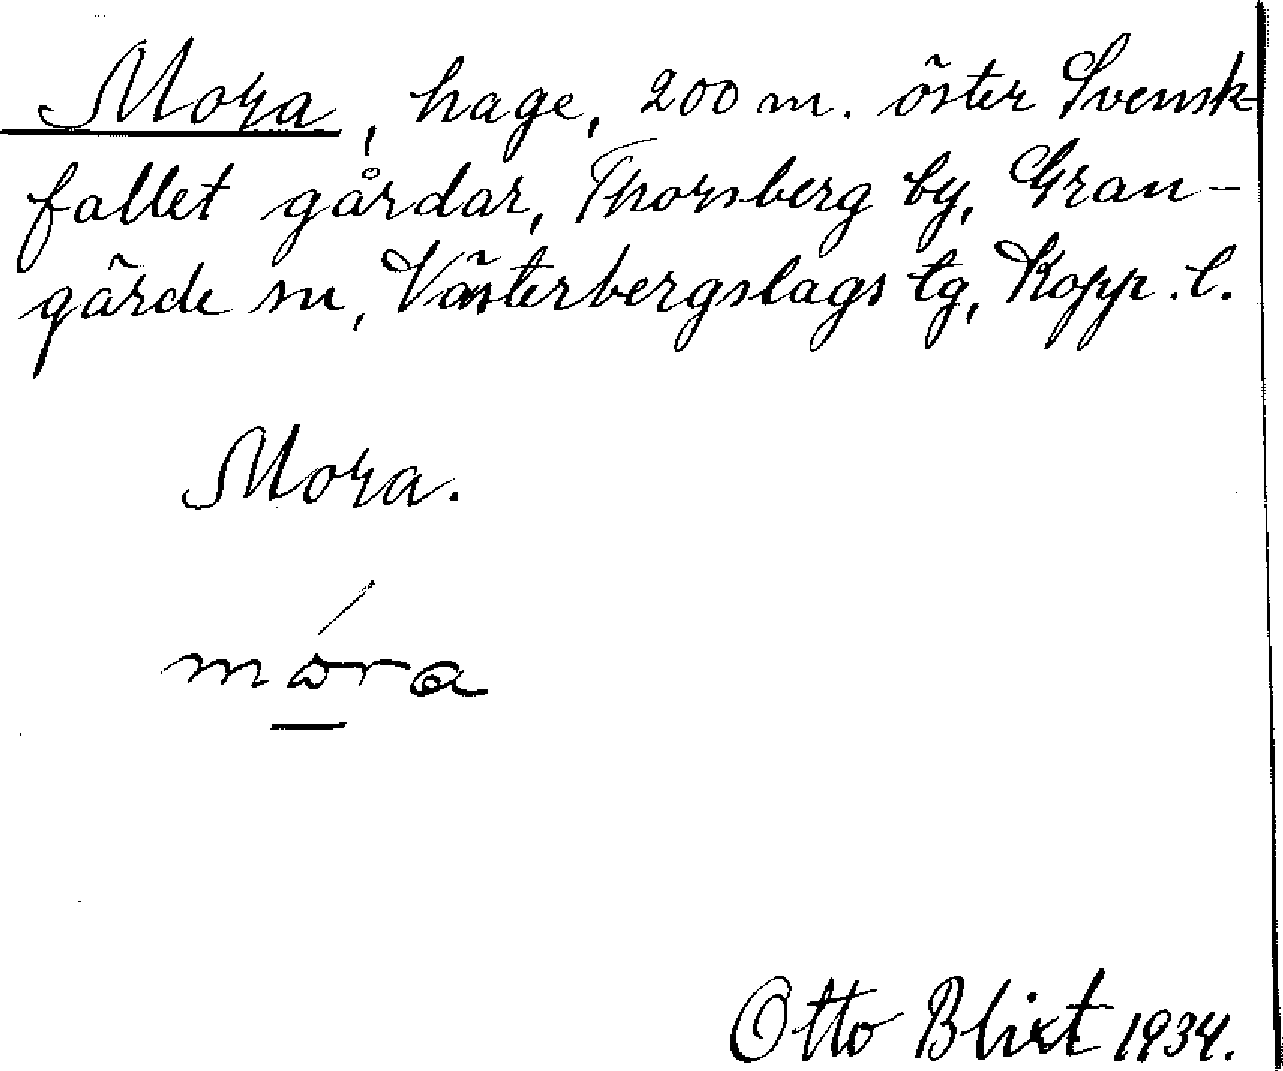 Mora, hage, 200 m. öster Svensk-
fallet gårdar, Thorsberg by, Gran-
gärde sn, Västerbergslags tg, Kopp. l.
Mora.
móra
Otto Blixt 1934.